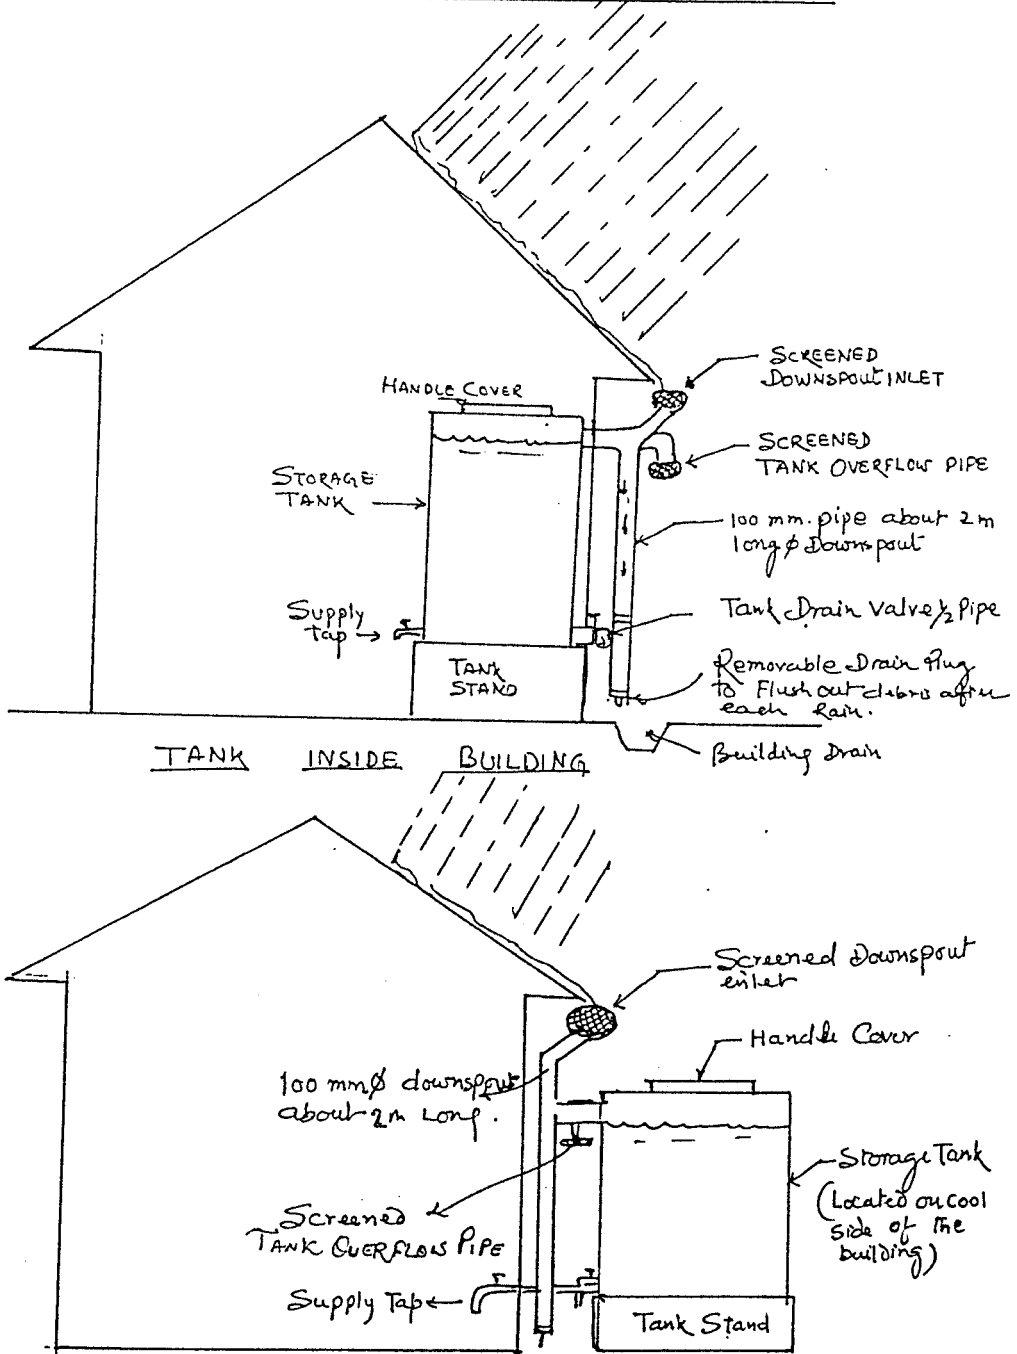 SCREENED
DOWNSPOUT INLET
HANDLE COVER
SCREENED
TANK OVERFLOW PIPE
STORAGE
TANK
100 mm. pipe about 2m
long ϕ Downspout
Supply
tap
Tank Drain Valve 1/2 Pipe
TANK
STAND
Removable Drain Plug
to Flush out debris after
each Rain.
Building Drain
TANK INSIDE BUILDING
Screened Downspout
enlet
Handle Cover
100 mmϕ downspout
about 2m Long.
Storage Tank
(Located on cool
Side of the
building)
Screened
TANK OVERFLOW PIPE
Supply Tap
Tank Stand